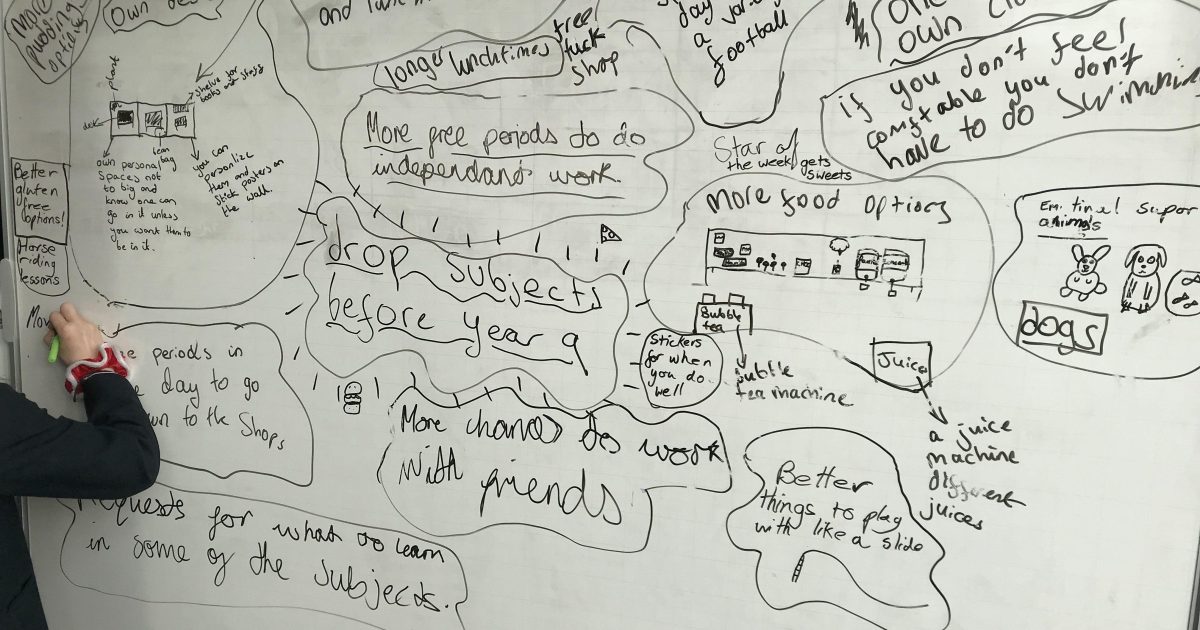 More
pudding
options
Own
and
longer lunchtimes
free
tuck
shop
day
a
football
own
if you don't feel
comftable you don't
have to do swimming
plant
Shelve for
books and stuff
desk
bean
bag
own personal
spaces not
to big and
know one can
go in it unless
you want them to
be in it.
you can
personalize
them and
stick posters on
the wall.
Better
gluten
free
options!
Horse
riding
lessons
More free periods to do
independant work.
Star of
the week gets
sweets
More food options
Bubble
tea
bubble
tea machine
Juice
a juice
machine
different
juices
animals
dogs
drop subjects
before year 9
Stickers
for when
you do
well
periods in
day to go
to the Shops
More chances to work
with friends
Better
things to play
with like a slide
Requests for what to learn
in some of the subjects.